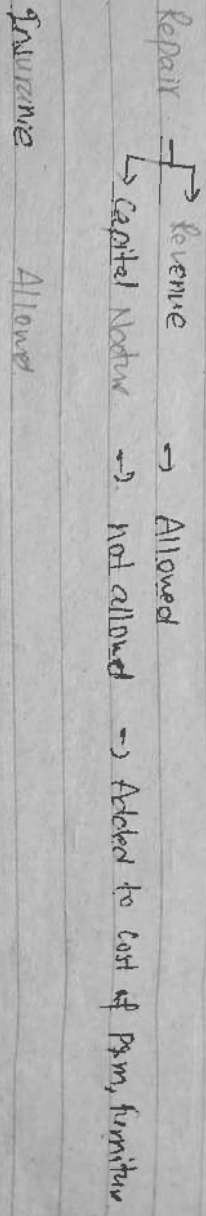 Repair → Revenue → Allowed
↳ Capital Natur → not allowed → Added to cost of P&m, furnitur
Insurance Allowed